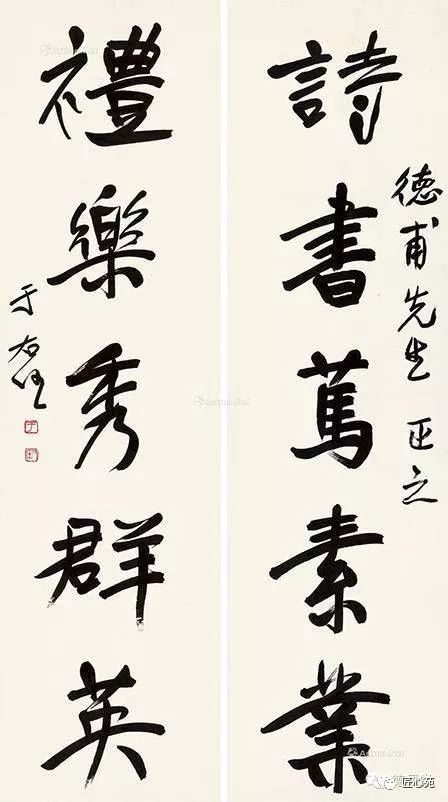 德甫先生 正之
詩書篤素業
禮樂秀群英
于右任
匠心苑